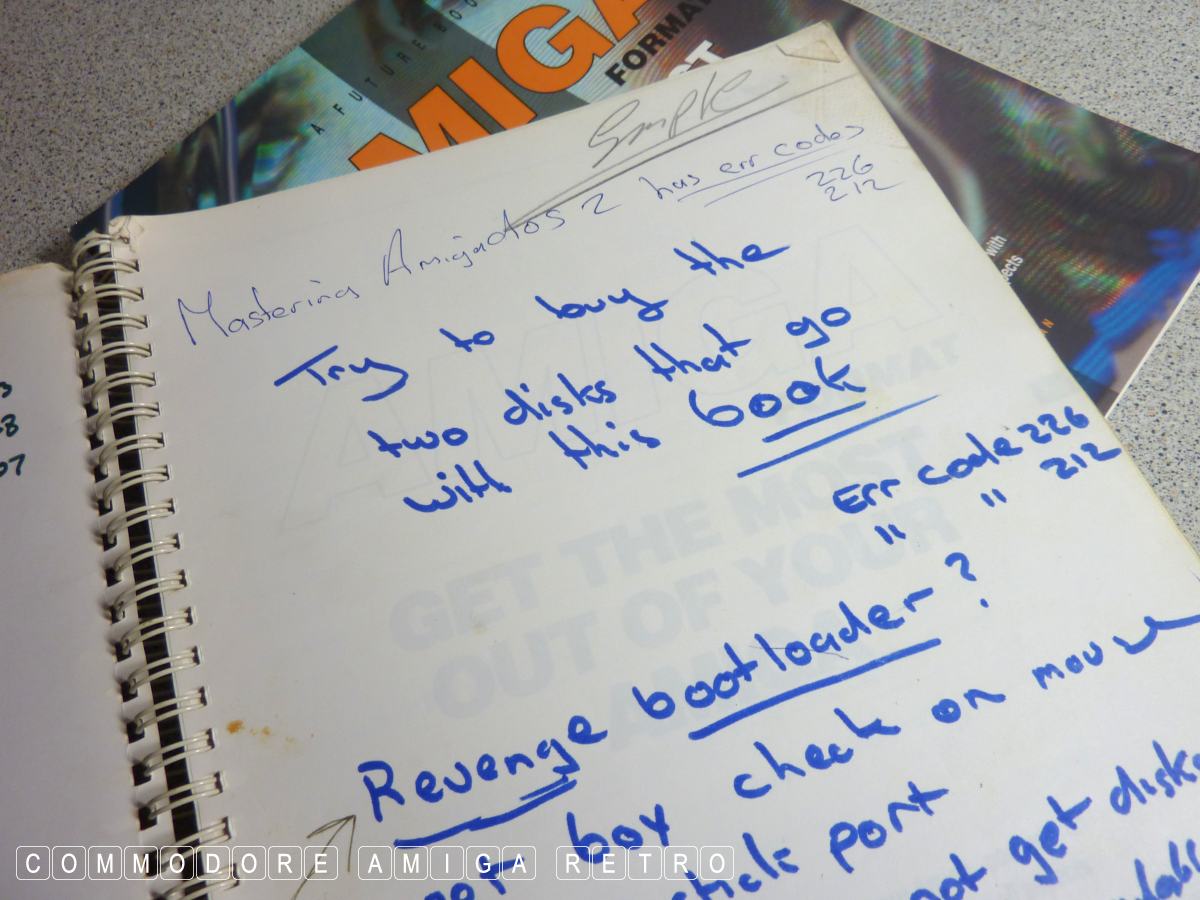 A FUTURE BOO
AMIGA
FORMAT
ST
Simple
Mastering AmigaDOS 2 has err codes
226
212
Try to buy the
two disks that go
with this book
Err code 226
" " 212
Revenge bootloader ?
not boy check on mouse
stick port
not get disks
AMIGA
FORMAT
GET THE MOST
OUT OF YOUR
AMIGA
with
ects
3
8
07
COMMODORE AMIGA RETRO